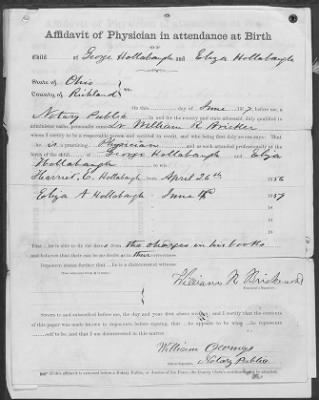 Affidavit of Physician in attendance at Birth
OF
Child of George Hollabaugh and Eliza Hollabaugh
State of Ohio
County of Richland ss:
On this day of June 187, before me, a
Notary Public in and for the county and state aforesaid, duly qualified to
administer oaths, personally came Dr William R Bricker
whom I certify to be a respectable person and entitled to credit, and who being duly sworn, says: That
he is practicing Physician and as such attended professionally at the
birth of the child of George Hollabaugh and Eliza
Hollabaugh
Harriet, C. Hollabaugh born April 26th 1856
Eliza A Hollabaugh " June 1857
18
18
18
That he is able to fix the dates from the charges in his books
and believes that there can be no doubt as to their correctness.
Deponent states further that he is a disinterested witness.
William R Bricker
Deponent's Signature.
Sworn to and subscribed before me, the day and year first above written, and I certify that the contents
of this paper was made known to deponent before signing, that he appears to be whom he represents
self to be, and that I am disinterested in this matter.
William
Notary Public
Official Signature.